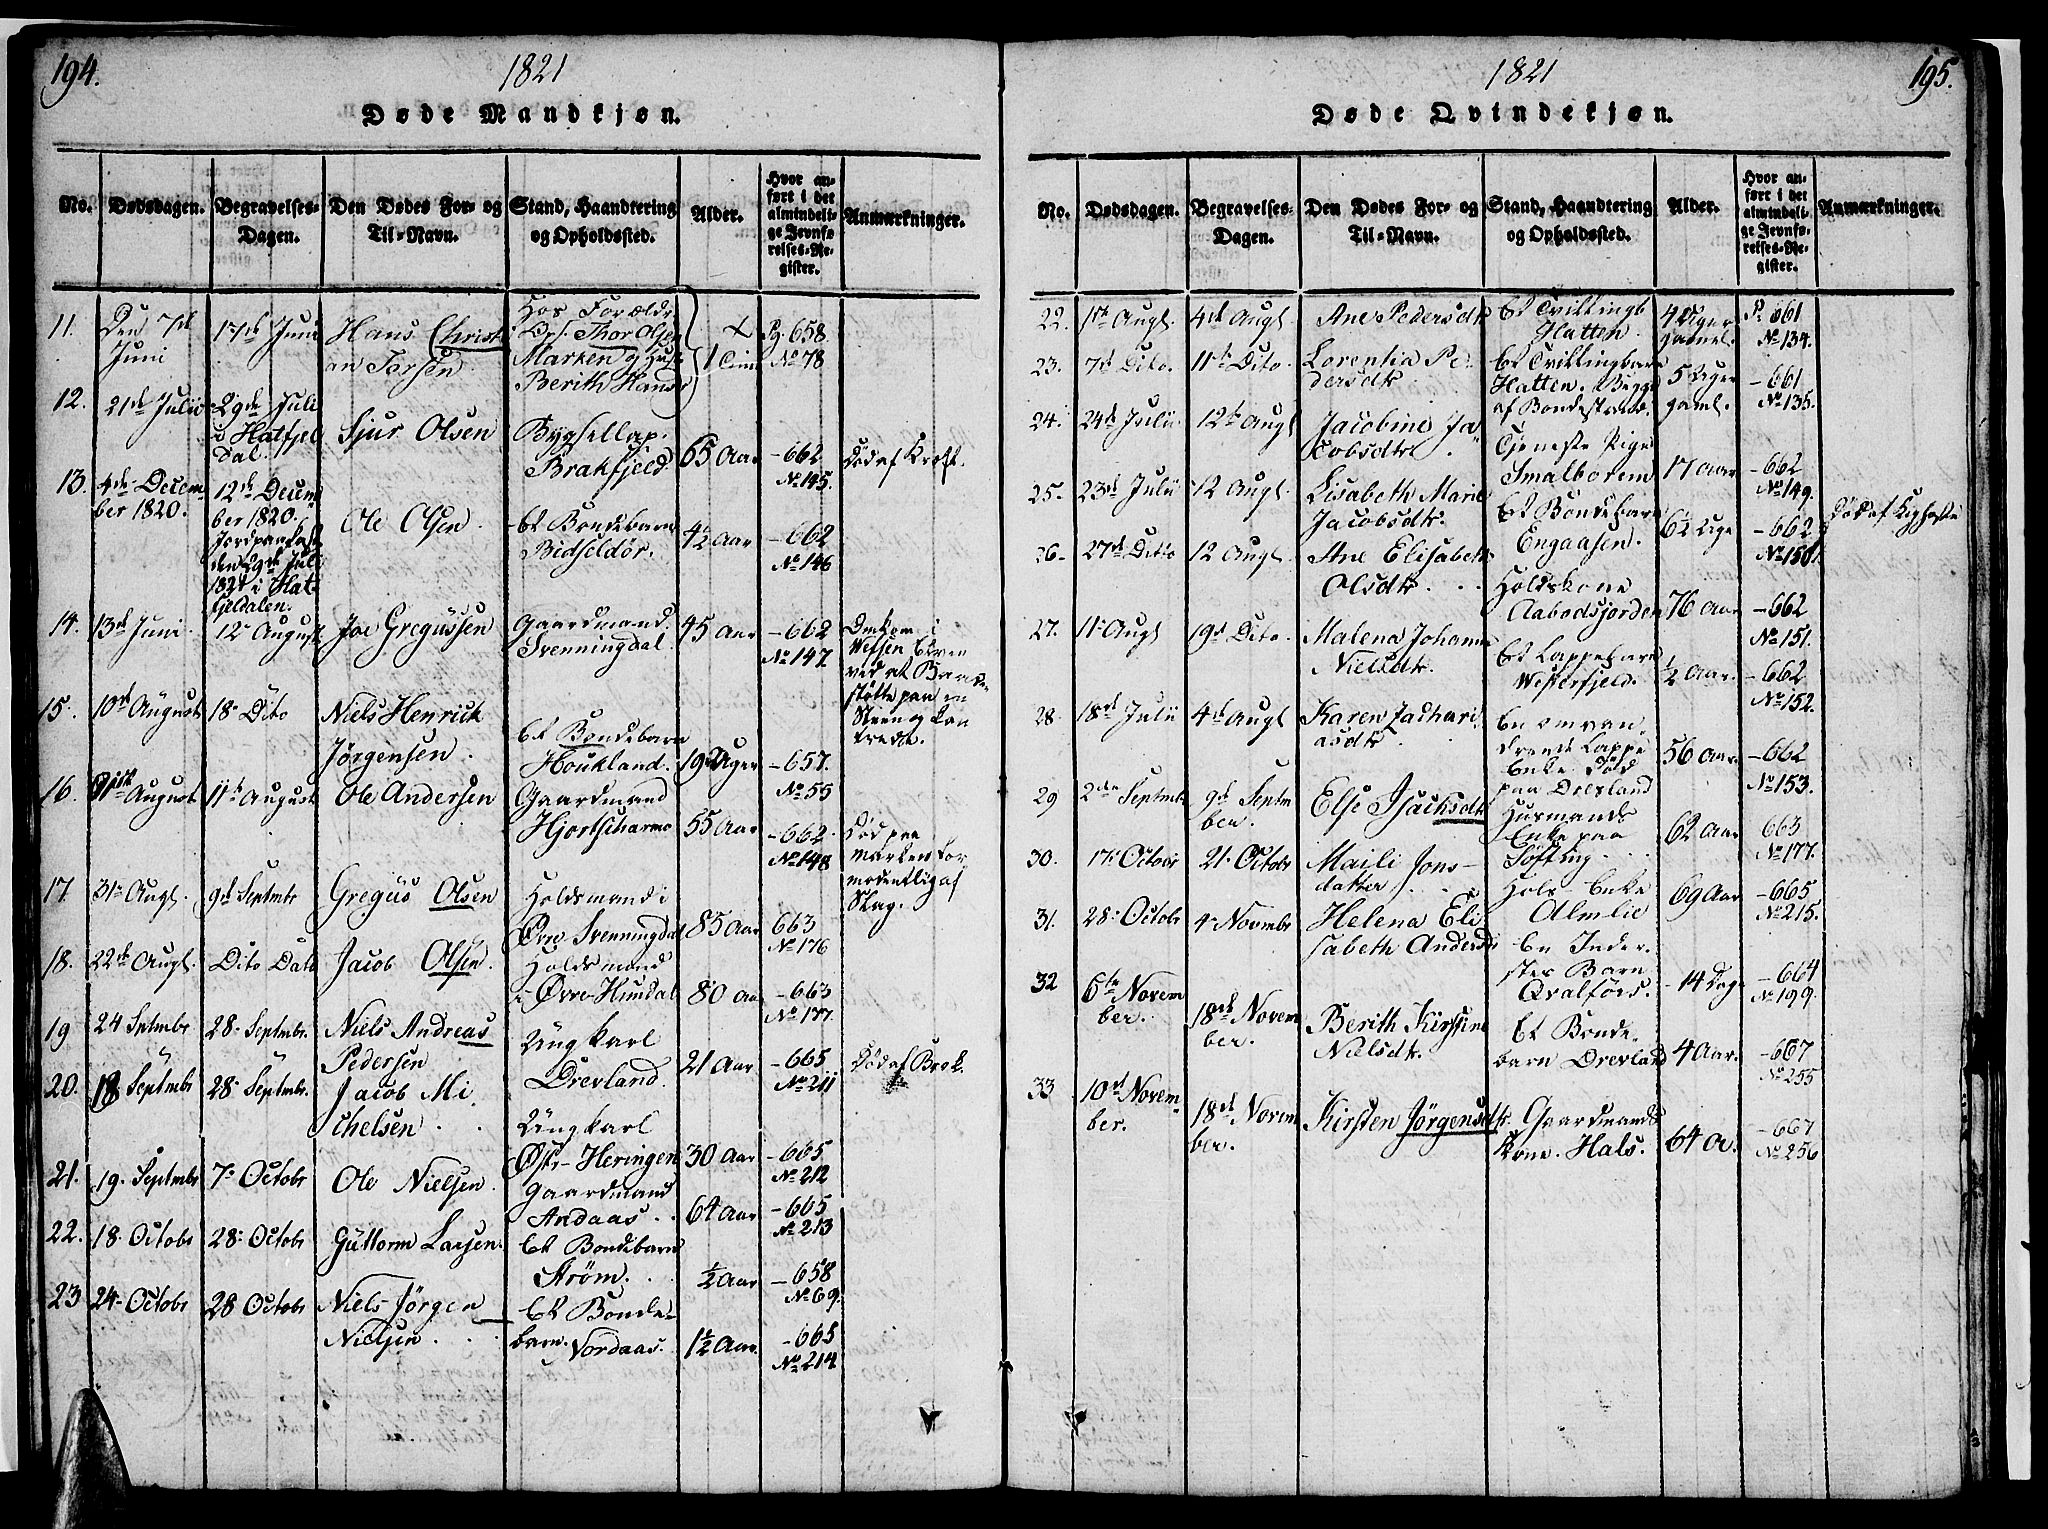 194.
1821
Døde Mandkjøn.
No.
Dødsdagen.
Begravelses-
Dagen.
Den Dødes For- og
Til-Navn.
Stand, Haandtering
og Opholdssted.
Alder.
Hvor an-
ført i det
almindeli-
ge Jevnfø-
relses-Re-
gister.
Anmærkninger.
11.
Den 7de
Juni
17de Juni
Hans Christi
an Torsen
Hos Forældr.
Thor Olsen
Marken og
Berith Hans
1 Time
Pg. 658.
No 78
12.
21de Julii
29de Juli
i Hatfjel
Dal.
Sjur Olsen
Bygsellap.
Brakfjeld.
65 Aar
- 662
No 145.
Død af Kræft.
13.
4de Decem-
ber 1820.
12de Decem
ber 1820.
Jordpaakast
den 29de Juli
1821 i Hat-
fjeldalen.
Ole Olsen
Et Bondebarn
Bidseldør.
4½ Aar
- 662
No 146
14.
13de Juni
12te August
Joe Gregussen
Gaardmand
Svenningdal
45 Aar
- 662
No 147
Omkom i
Vefsen Elven
ved at Baade
støtte paa en
Steen og kan
trede.
15.
10de August
18de Dito
Niels Henrick
Jørgensen
Et Bondebarn
Houkland.
19 Uger
- 657
No 55
16.
August
11te August
Ole Andersen
Gaardmand
55 Aar
- 662
No 148
Død paa
marken for
modentlig af
Slag.
17
31te Augt.
9de Septmbr
Gregus Olsen
Holdsmand i
Øvre Svenningdal
85 Aar
663
No 176
18.
22de Augt.
Dito Dato
Jacob Olsen.
Holdsmand
i Øvre Hundal
80 Aar
- 663
No 177.
19
24 Sptmbr
28. Septmbr.
Niels Andreas
Pedersen
Ung karl
Drevland.
21 Aar
- 665
No 211
Død af Brok.
20.
18 Septmbr
28. Septmbr.
Jacob Mi
chelsen.
Ung karl
Østr- Heringen
30 Aar
- 665
No 212
21.
19. Septmbr
7. Octobr
Ole Nielsen
Gaardmand
Andaas.
64 Aar
- 665
No 213
22.
18. Octobr
28. Octobr
Guttorm Larsen.
Et Bondebarn
Strøm.
½ Aar
- 658
No 69.
23
24- Octobr
28 Octobr
Niels Jørgen
Nielsen.
Et Bonde-
barn. Vordaas.
1½ Aar
- 665
No 214.
1821
195.
Døde Qvindekjøn.
No.
Dødsdagen.
Begravelses-
Dagen.
Den Dødes For- og
Til-Navn.
Stand, Haandtering
og Opholdssted.
Alder.
Hvor an-
ført i det
almindeli-
ge Jevnfø-
relses-Re-
gister.
Anmærkninger.
22.
1ste Augt.
4de Augt
Ane Pedersdtr
Et Tvillingb
Hatten.
4 Uger
gamel.
P. 661
No 134.
23.
7de Dito.
11te Dito.
Lorentia Pe-
dersdtr
Et Tvillingbarn
Hatten. Begge
af Bondestand.
5 Uger
gaml.
- 661
No 135.
24.
24de Julii
12te Augt
Jacobine Ja
kobsdtr.
Tjeneste Pige
Smalborem
17 Aar
- 662
No 149.
25.
23de Julii
12 Augt.
Lisabeth Marie
Jacobsdtr.
Et Bondebarn
Engaasen.
6½ Uge
- 662
No 150.
Død af Kighoste
26.
27de Dito
12 Augt.
Ane Elisabeth
Olsdtr.
Holdskone
Aabodsjorden
76 Aar
- 662
No 151.
27.
11te Augt
19de Dito.
Malena Johanna
Nielsdtr.
Et Lappebarn
Westerfjeld.
½ Aar.
- 662
No 152.
28.
18de Julii
4de Augt
Karen Zachari
asdtr
En omvan-
drende Lappe
Enke død
paa Drevland
56 Aar.
- 662
No 153.
29
2den Septmbr
9de Septm
ber.
Else Isachsdtr
Husmands
Enke paa
Søfting.
62 Aar
663
No 177.
30.
17. Octobr
21. Octobr
Maili Jons-
datter.
Hols- Enke
Almlie
69 Aar
- 665
No 215.
31.
28. Octobr
4- Novmbr
Helena Eli
sabeth Andersdtr
En Inder-
stes Barn
Qvalfors.
14 Dage
- 664
No 199.
32
6te Novem
ber.
18de Novem
ber.
Berith Kirstine
Nielsdtr.
Et Bonde-
barn Drevland
4 Aar.
- 667
No 255
33
10de Novem-
ber.
18de Novem
ber.
Kirsten Jørgensdtr.
Gaardmands
kone. Hals.
64 A.
- 667
No 256